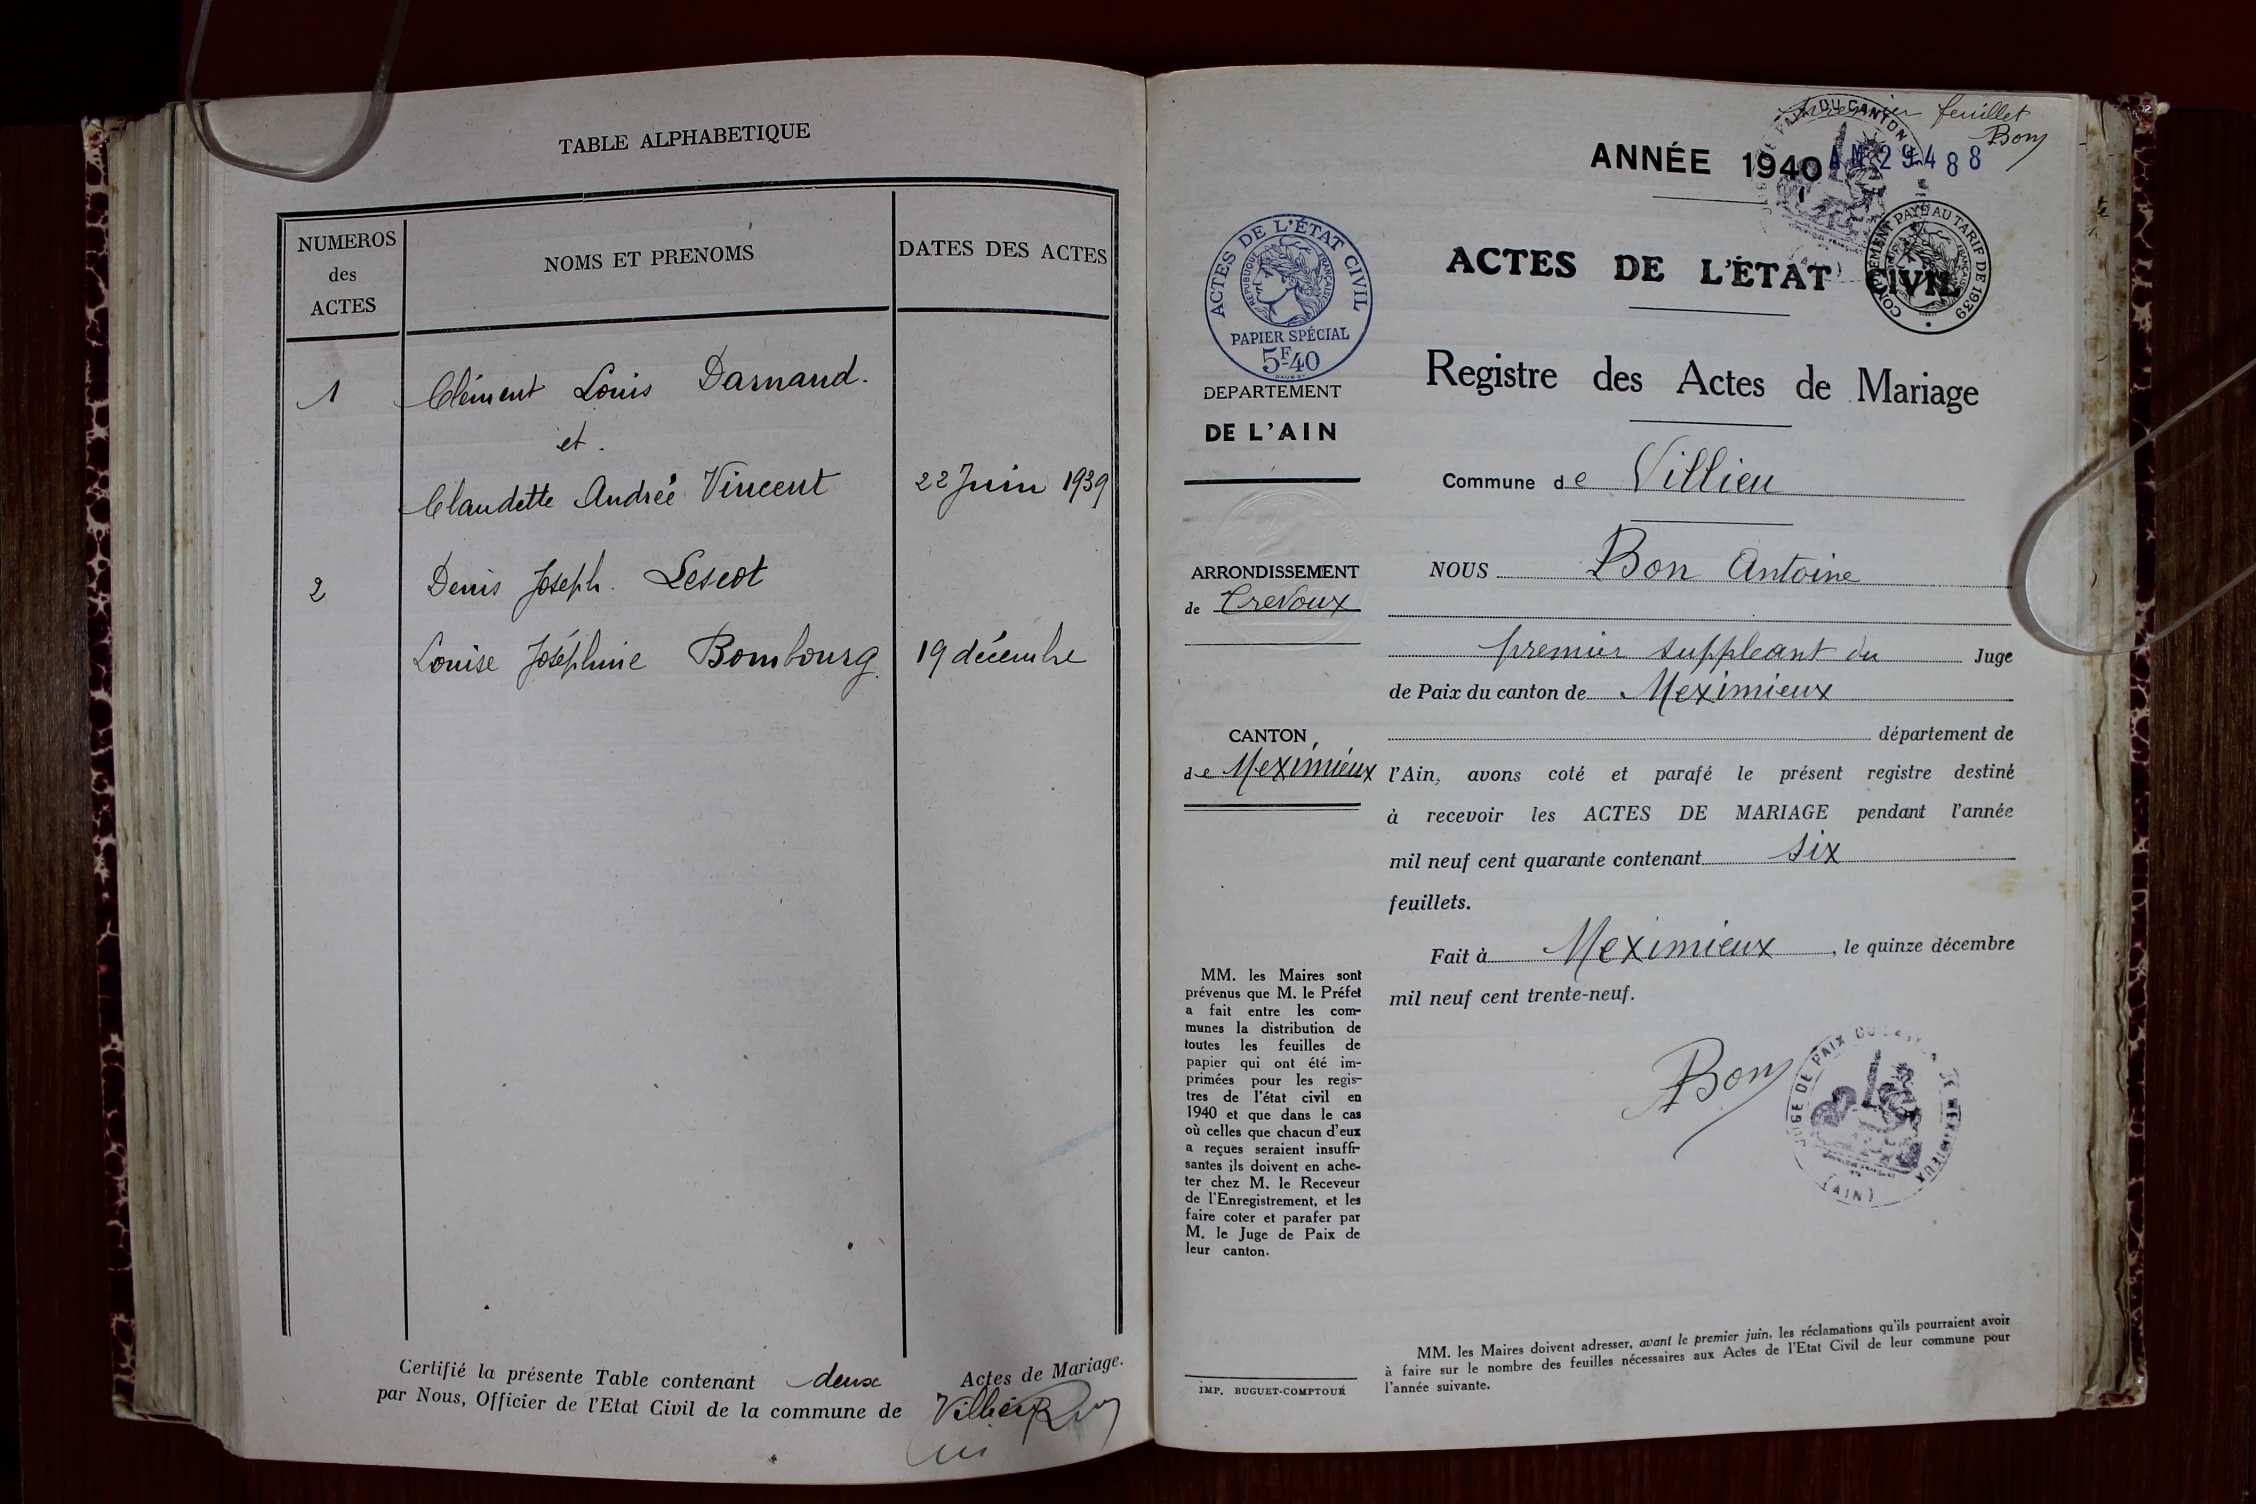 TABLE ALPHABETIQUE
NUMEROS
des
ACTES
NOMS ET PRENOMS
DATES DES ACTES
1
Clément Louis Darnand.
et.
Claudette Andrée Vincent
22 Juin 1939
2
Denis Joseph. Lescot
Louise Joséphine Bombourg.
19 décembre
Certifié la présente Table contenant deux Actes de Mariage.
par Nous, Officier de l'Etat Civil de la commune de Villieu
premier feuillet
Bon
ANNÉE 1940
AM 29488
ACTES DE L'ÉTAT CIVIL
REPUBLIQUE FRANÇAISE
PAPIER SPÉCIAL
5F40
COMPLÉMENT PAYÉ AU TARIF DE 1939
ACTES DE L'ÉTAT CIVIL
Registre des Actes de Mariage
DEPARTEMENT
DE L'AIN
Commune de Villieu
ARRONDISSEMENT
de Trevoux
CANTON
de Meximieux
NOUS Bon Antoine
premier suppleant du Juge
de Paix du canton de Meximieux
département de
l'Ain, avons coté et parafé le présent registre destiné
à recevoir les ACTES DE MARIAGE pendant l'année
mil neuf cent quarante contenant six
feuillets.
Fait à Meximieux, le quinze décembre
mil neuf cent trente-neuf.
Bon
JUGE DE PAIX DU CANTON DE MEXIMIEUX
(AIN)
MM. les Maires sont
prévenus que M. le Préfet
a fait entre les com-
munes la distribution de
toutes les feuilles de
papier qui ont été im-
primées pour les regis-
tres de l'état civil en
1940 et que dans le cas
où celles que chacun d'eux
a reçues seraient insuffi-
santes ils doivent en ache-
ter chez M. le Receveur
de l'Enregistrement, et les
faire coter et parafer par
M. le Juge de Paix de
leur canton.
IMP. BUGUET-COMPTOUR
MM. les Maires doivent adresser, avant le premier juin, les réclamations qu'ils pourraient avoir
à faire sur le nombre des feuilles nécessaires aux Actes de l'Etat Civil de leur commune pour
l'année suivante.